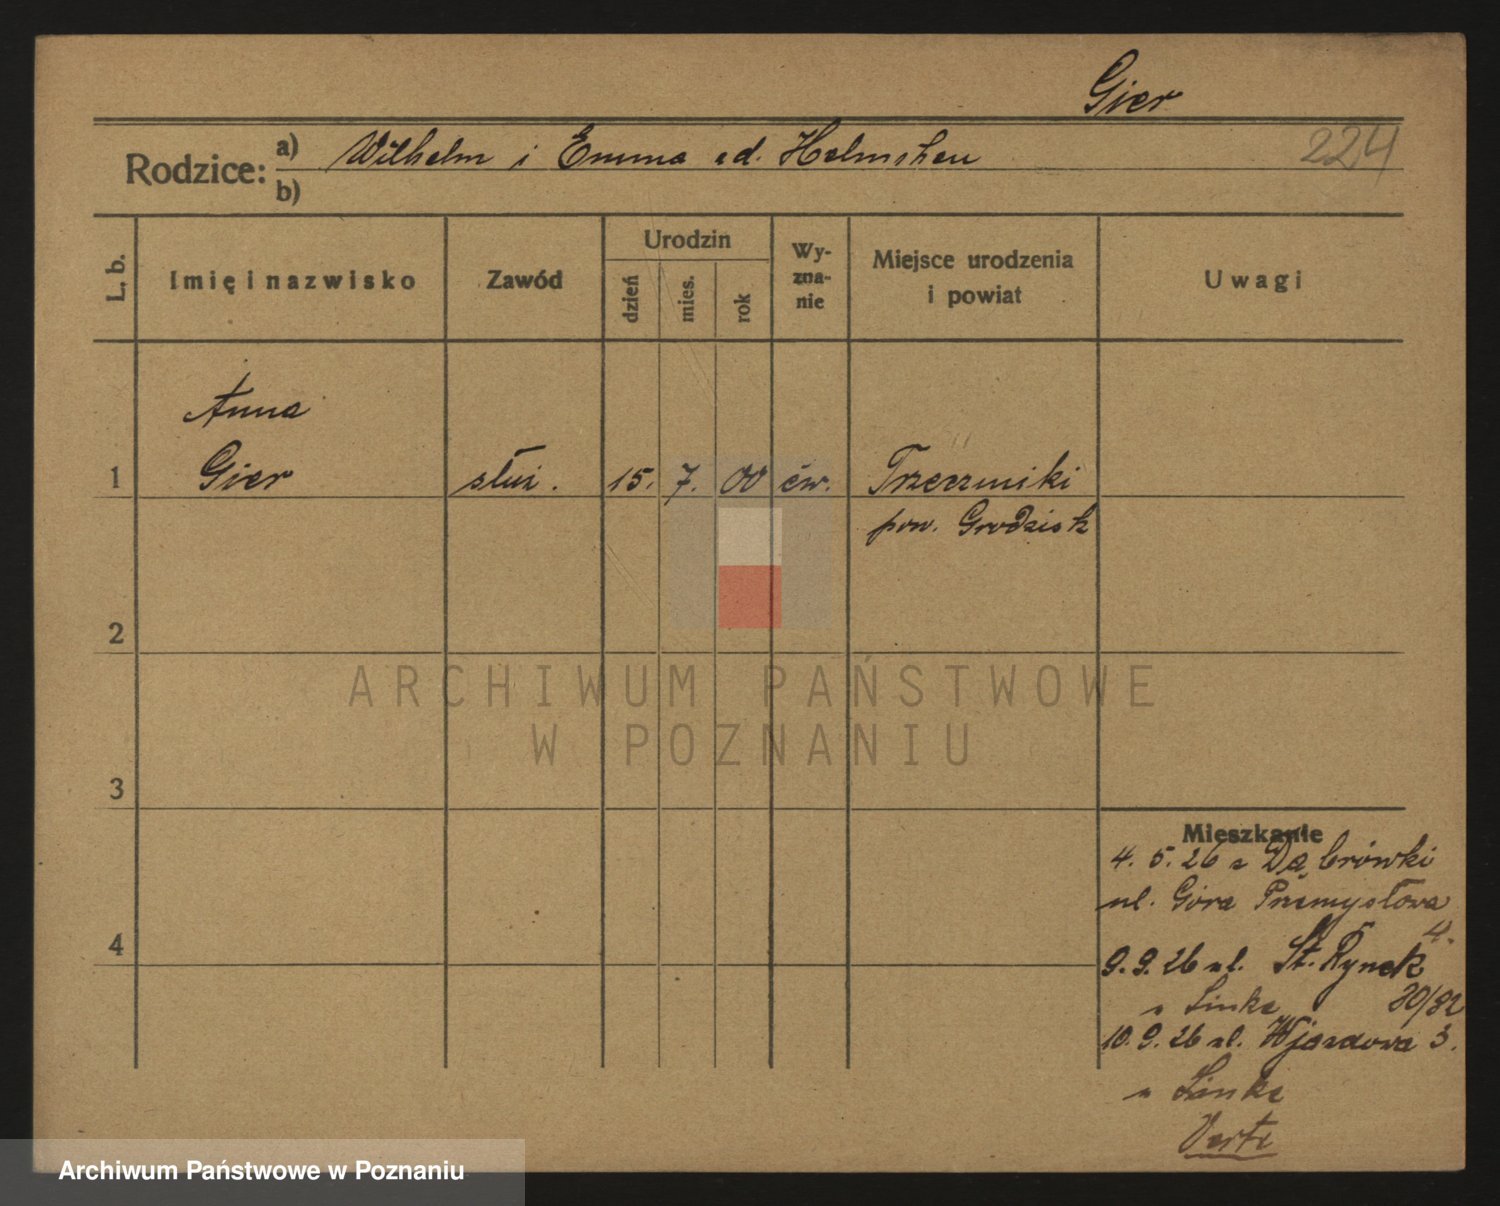 Gier
224
Rodzice: a) Wilhelm i Emma zd. Helmchen
b)
L. b.
Imię i nazwisko
Zawód
Urodzin
dzień
mies.
rok
Wy-
zna-
nie
Miejsce urodzenia
i powiat
Uwagi
Anna
1 Gier służ. 15. 7. 00 ew.
pow. Grodzisk
2
3
4
ARCHIWUM PAŃSTWOWE
W POZNANIU
Mieszkanie
4. 5. 26 z Dąbrówki
ul. Góra Przemysłowa
4.
9. 9. 26 ul. St. Rynek
u Linke
10. 9. 26 ul. Wjazdowa 3.
u Linke
Verte
Archiwum Państwowe w Poznaniu